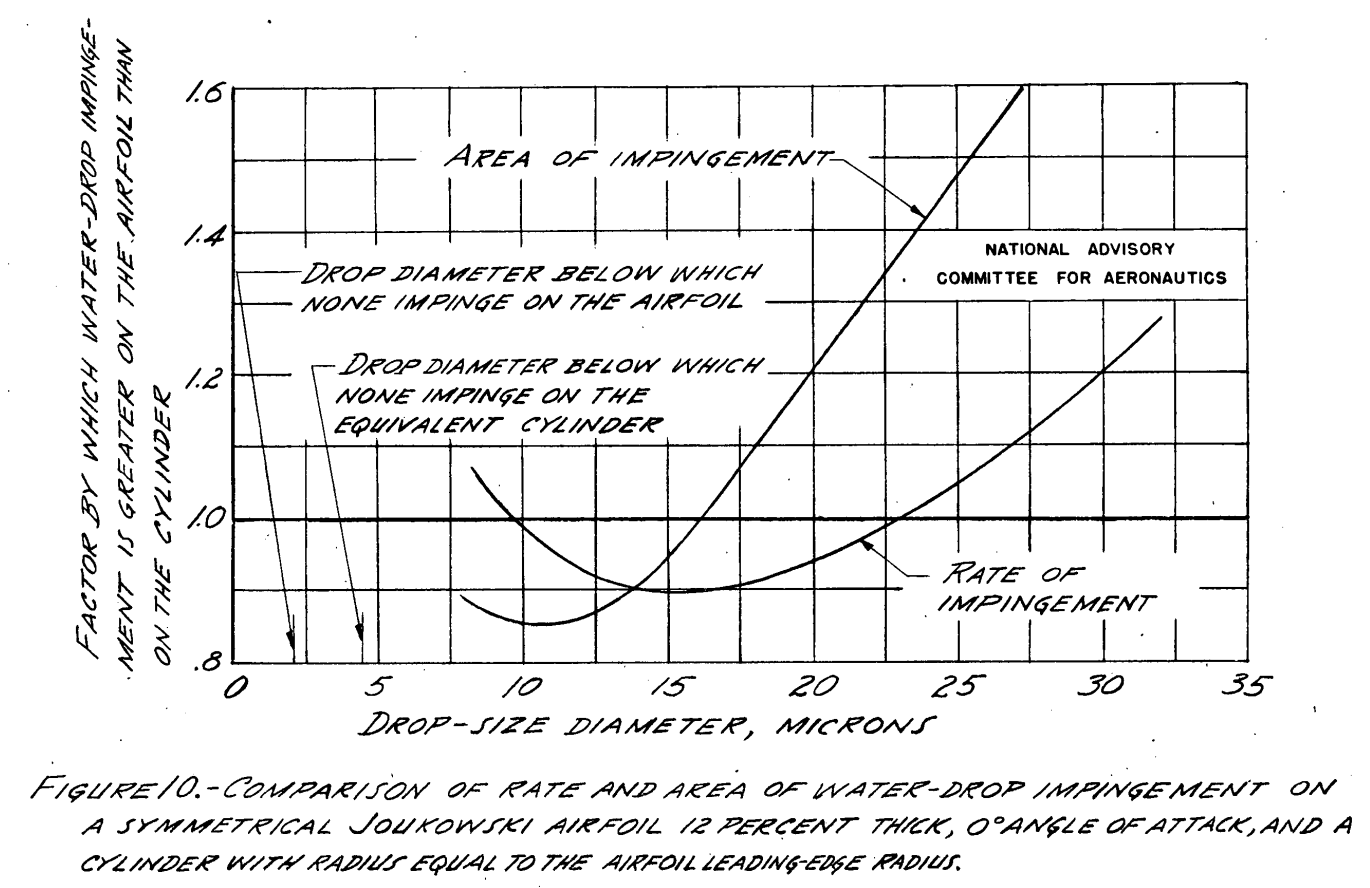 FACTOR BY WHICH WATER-DROP IMPINGE-
MENT IS GREATER ON THE AIRFOIL THAN
ON THE CYLINDER
1.6
1.4
1.2
1.0
.8
AREA OF IMPINGEMENT
NATIONAL ADVISORY
COMMITTEE FOR AERONAUTICS
DROP DIAMETER BELOW WHICH
NONE IMPINGE ON THE AIRFOIL
DROP DIAMETER BELOW WHICH
NONE IMPINGE ON THE
EQUIVALENT CYLINDER
RATE OF
IMPINGEMENT
0 5 10 15 20 25 30 35
DROP-SIZE DIAMETER, MICRONS
FIGURE 10.-COMPARISON OF RATE AND AREA OF WATER-DROP IMPINGEMENT ON
A SYMMETRICAL JOUKOWSKI AIRFOIL 12 PERCENT THICK, 0° ANGLE OF ATTACK, AND A
CYLINDER WITH RADIUS EQUAL TO THE AIRFOIL LEADING-EDGE RADIUS.